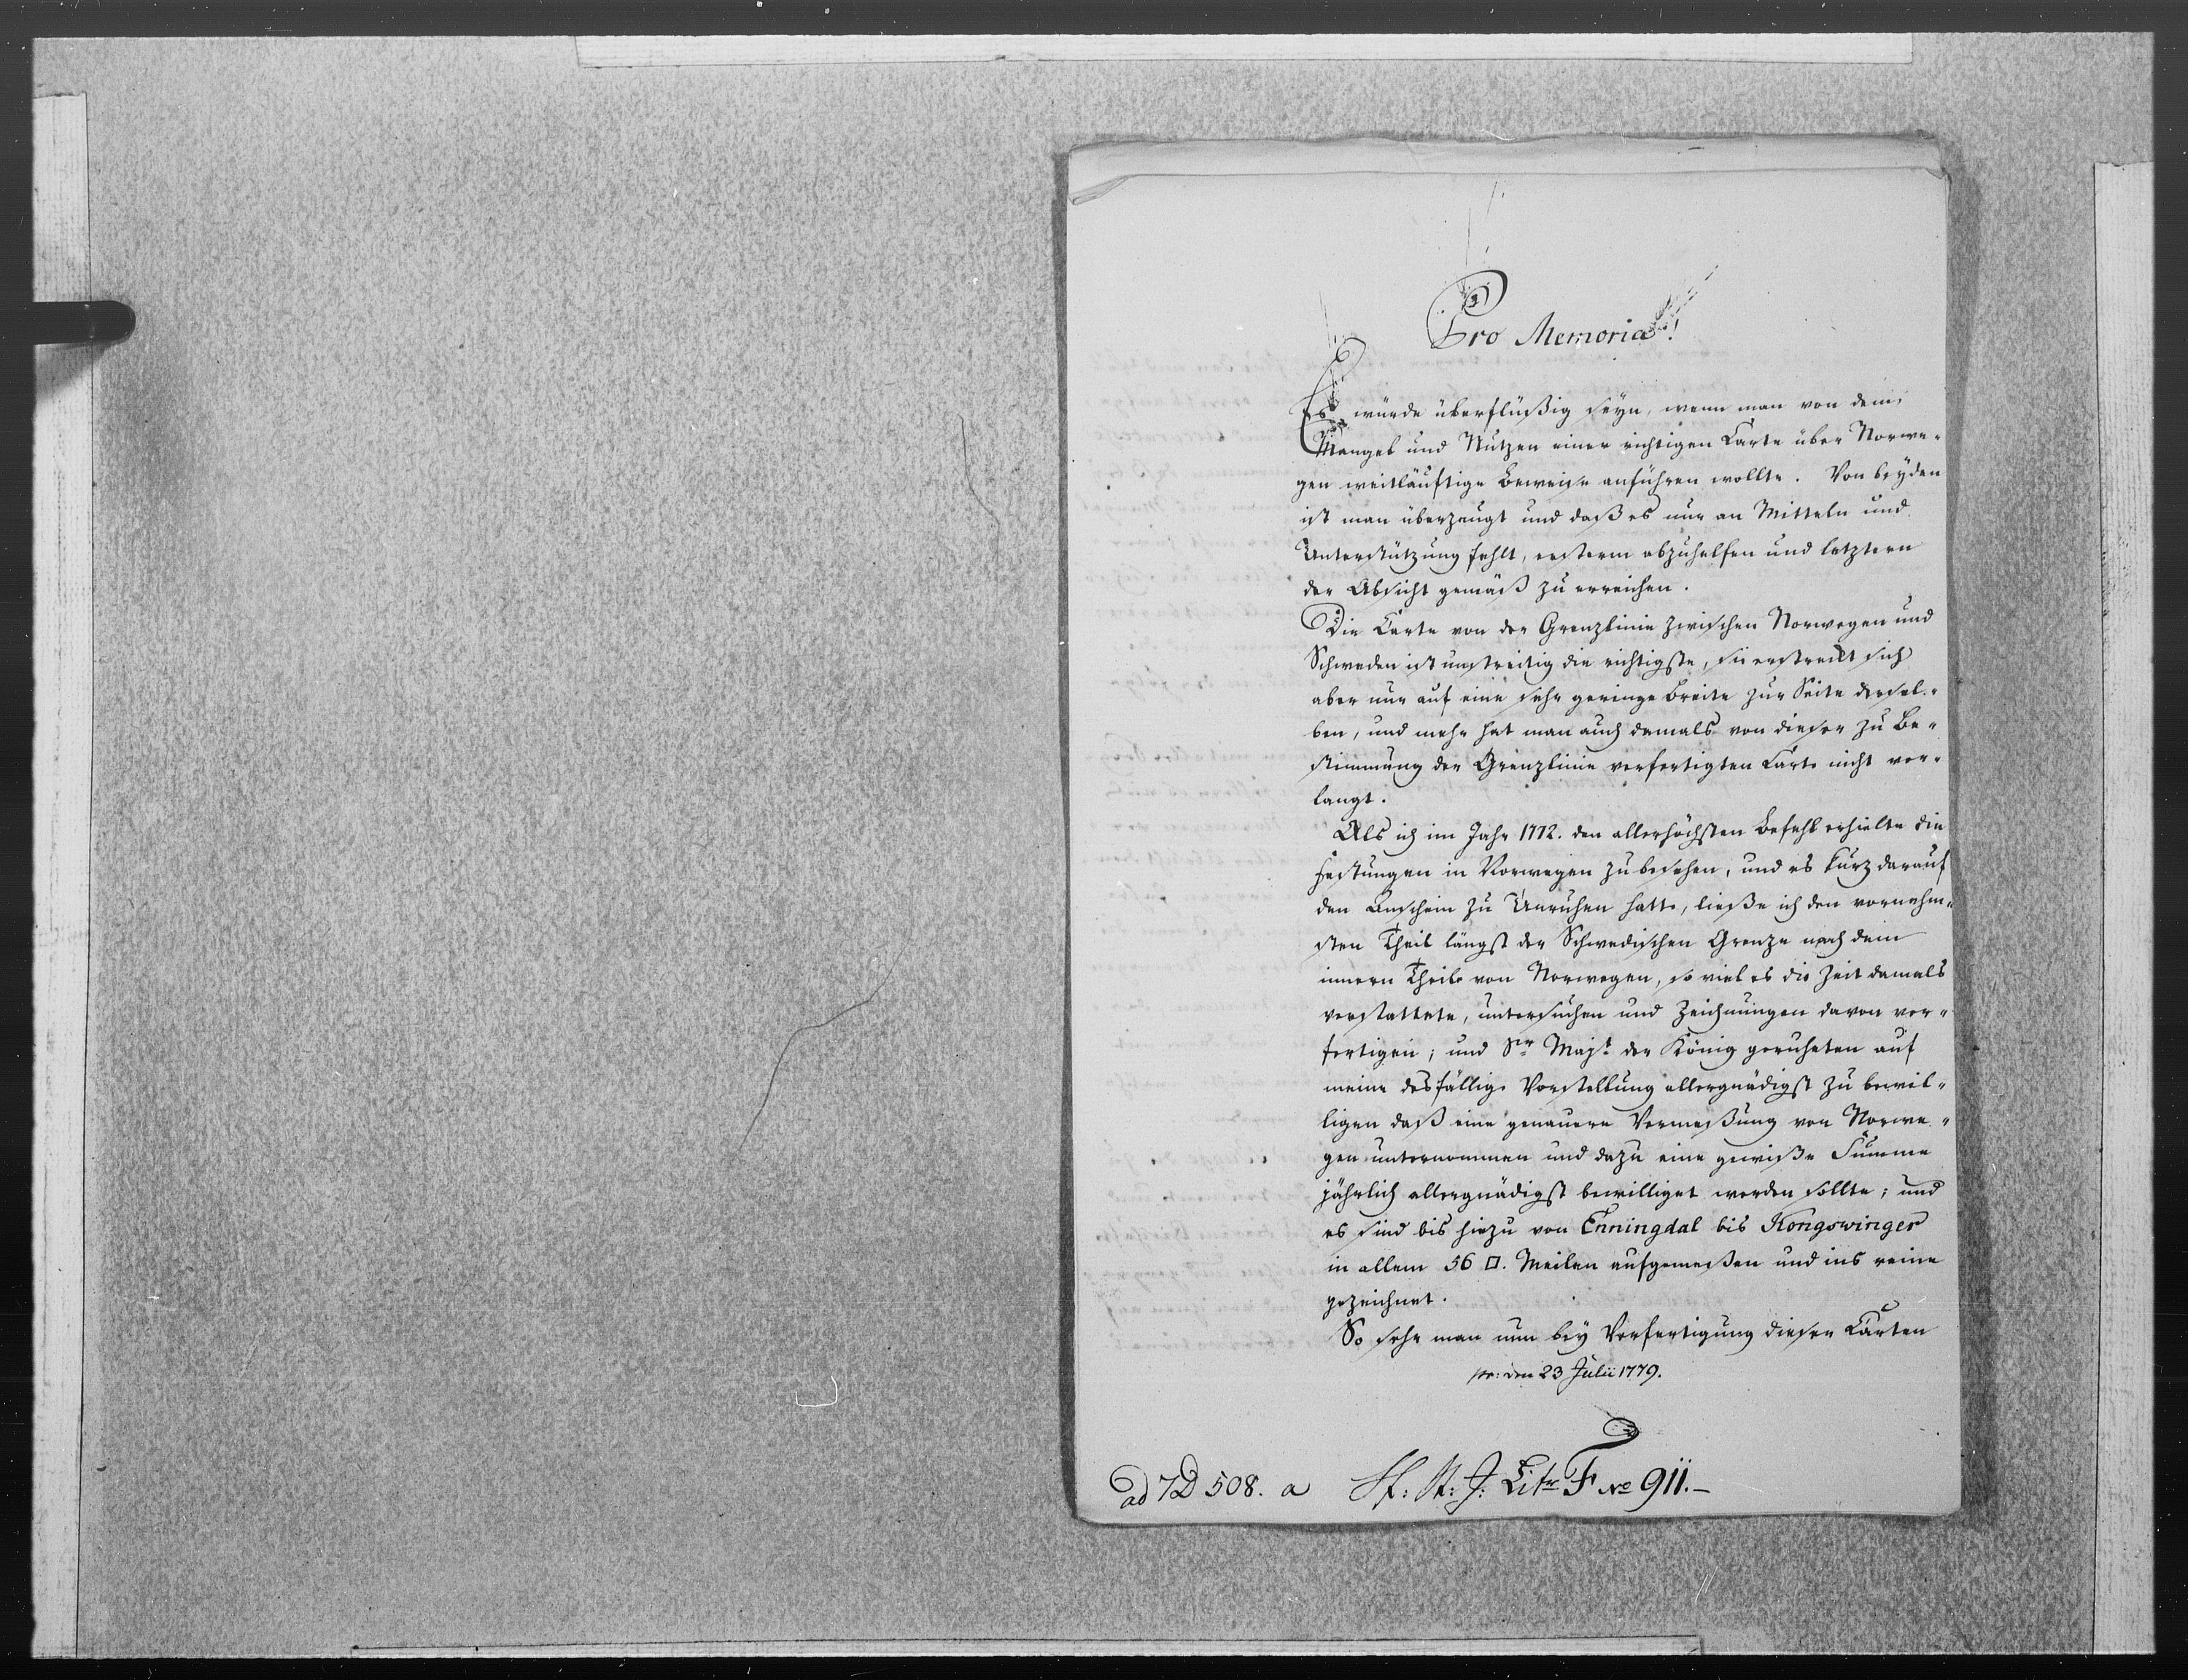 Pro Memoria!
Es würde überflüßig seyn, wenn man von dem
Mangel und Nutzen einer richtigen Carte über Norwe-
gen weitläuftige Beweise anführen wollte. Von beyden
ist man überzeugt und daß es nur an Mitteln und
Unterstützung fehlt, ersterm abzuhelfen und letztern
der Absicht gemäß zu erreichen.
Die Carte von der Grenzlinie zwischen Norwegen und
Schweden ist unstreitig die richtigste, sie erstreckt sich
aber nur auf eine sehr geringe Breite zur Seite dersel-
ben, und mehr hat man auch damals von dieser zu Be-
stimmung der Grenzlinie verfertigten Carte nicht ver-
langt.
Als ich im Jahr 1772. den allerhöchsten Befehl erhielte die
Festungen in Norwegen zu besehen, und es kurz darauf
den Anschein zu Unruhen hatte, ließe ich den vornehm-
sten Theil längst der Schwedischen Grenze nach dem
innern Theile von Norwegen, so viel es die Zeit damals
verstattete, untersuchen und Zeichnungen davon ver-
fertigen; und Sr Majt der König geruheten auf
meine desfällige Vorstellung allergnädigst zu bewil-
ligen daß eine genauere Vermeßung von Norwe-
gen unternommen und dazu eine gewiße Summe
jährlich allergnädigst bewilliget werden sollte; und
es sind bis hiezu von Enningdal bis Kongswinger
in allem 56 □. Meilen aufgemeßen und ins reine
gezeichnet.
So sehr man nun bey Verfertigung dieser Carten
pr: den 23 Julii 1779.
ad 7D 508. a Litr F No 911.-